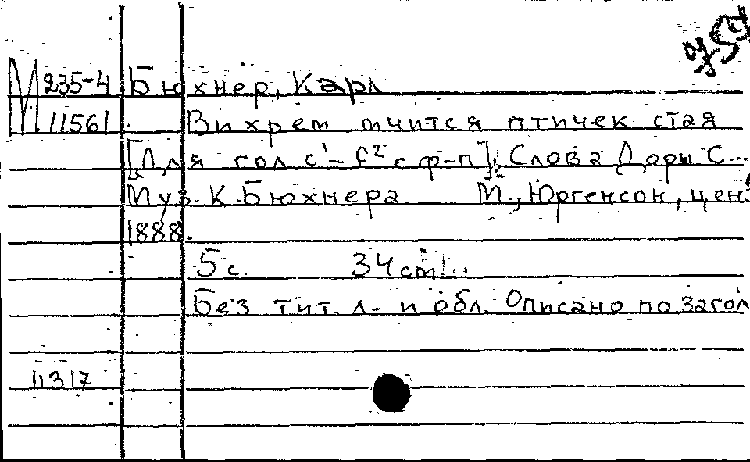 М 235-4 Бюхнер, Карл
11561 Вихрем мчится птичек стая
[Для гол. c¹-f² с ф-п]. Слова Дары С...
Муз. К. Бюхнера М., Юргенсон, ценз.
1888.
5 с. 34 cm.
Без тит. л. и обл. Описано по загол
11317